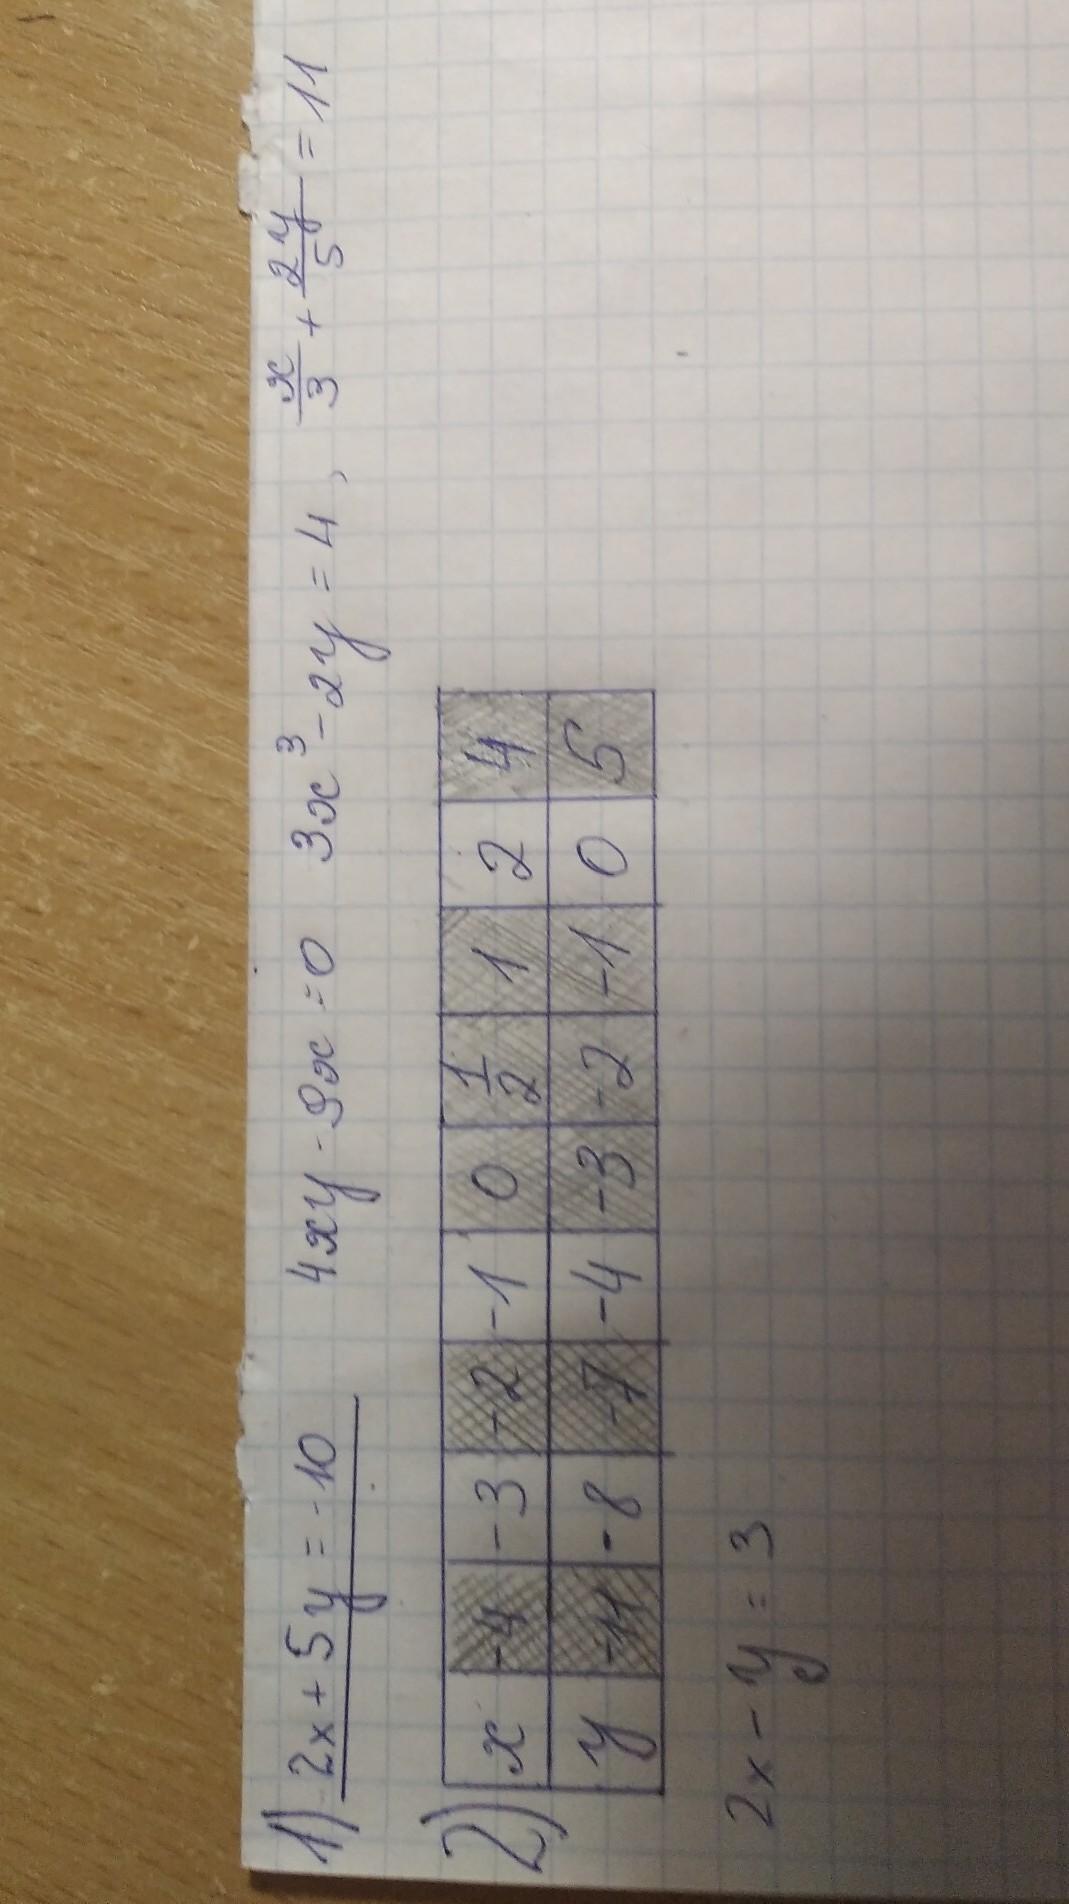 1) 2x + 5y = -10 4xy - 9x = 0 3x³ - 2y = 4, x/3 + 2y/5 = 11
2) x -4 -3 -2 -1 0 1/2 1 2 4
y -11 -8 -7 -4 -3 -2 -1 0 5
2x - y = 3